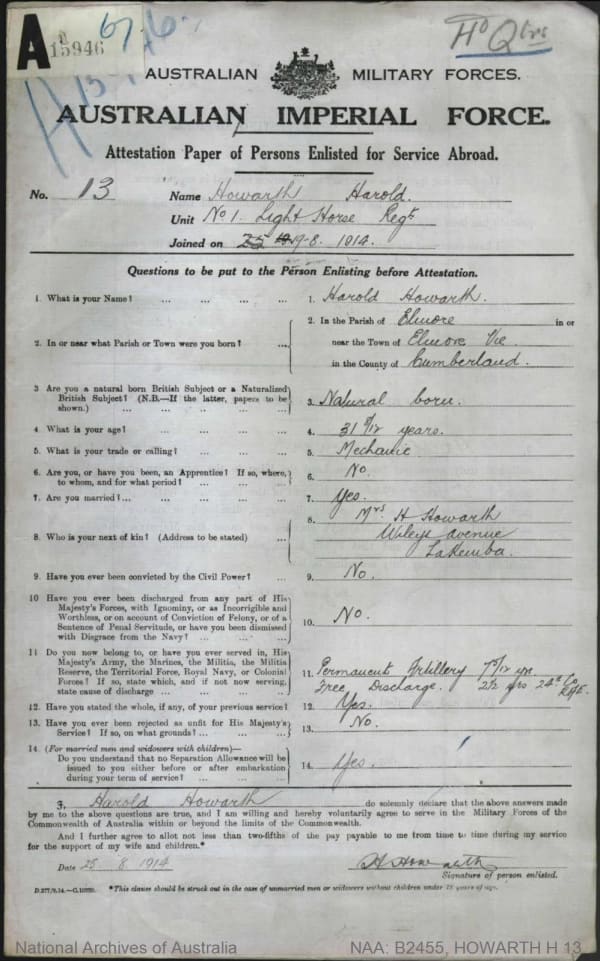 A
15946
Hd Qtrs
AUSTRALIAN MILITARY FORCES.
AUSTRALIAN IMPERIAL FORCE.
Attestation Paper of Persons Enlisted for Service Abroad.
No. 13 Name Howarth Harold.
Unit No 1 Light Horse Regt
Joined on 19-8. 1914.
Questions to be put to the Person Enlisting before Attestation.
1. What is your Name? ... ... ... ... 1. Harold Howarth.
2. In or near what Parish or Town were you born? ... 2. In the Parish of Elmore in or
near the Town of Elmore Vic
in the County of Cumberland.
3 Are you a natural born British Subject or a Naturalized
British Subject? (N.B.—If the latter, papers to be
shown.) ... ... ... ... ... 3. Natural born.
4. What is your age? ... ... ... ... 4. 31 8/12 years.
5. What is your trade or calling? ... ... ... 5. Mechanic
6. Are you, or have you been, an Apprentice? If so, where,
to whom, and for what period? ... ... ... 6. No.
7. Are you married?... ... ... ... ... 7. Yes.
8. Who is your next of kin? (Address to be stated) ... 8. Mrs H Howarth
Wileys avenue
Lakemba.
9. Have you ever been convicted by the Civil Power? ... 9. No.
10 Have you ever been discharged from any part of His
Majesty's Forces, with Ignominy, or as Incorrigible and
Worthless, or on account of Conviction of Felony, or of a
Sentence of Penal Servitude, or have you been dismissed
with Disgrace from the Navy? ... ... ... 10. No.
11 Do you now belong to, or have you ever served in, His
Majesty's Army, the Marines, the Militia, the Militia
Reserve, the Territorial Force, Royal Navy, or Colonial
Forces? If so, state which, and if not now serving,
state cause of discharge ... ... ... ... 11. Permanent Artillery 7 5/12 yrs.
Free Discharge. 2½ yrs 24th Co
12. Have you stated the whole, if any, of your previous service? 12. Yes.
13. Have you ever been rejected as unfit for His Majesty's
Service? If so, on what grounds? ... ... ... 13. No.
14. (For married men and widowers with children)—
Do you understand that no Separation Allowance will be
issued to you either before or after embarkation
during your term of service? ... ... ... 14. Yes.
I, Harold Howarth do solemnly declare that the above answers made
by me to the above questions are true, and I am willing and hereby voluntarily agree to serve in the Military Forces of the
Commonwealth of Australia within or beyond the limits of the Commonwealth.
And I further agree to allot not less than two-fifths of the pay payable to me from time to time during my service
for the support of my wife and children.*
Date 25 8 1914 H Howarth
Signature of person enlisted.
*This clause should be struck out in the case of unmarried men or widowers without children under 18 years of age.
National Archives of Australia NAA: B2455, HOWARTH H 13